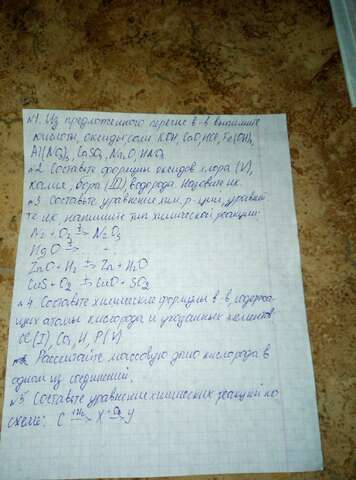 №1. Из предложенного перечня в-в выпишите
кислоты, оксиды, соли KOH, CaO, HCl, Fe(OH)₂,
Al(NO₃)₃, CaSO₃, Na₂O, HNO₃
№2. Составьте формулы оксидов хлора (V),
калия, бора (III), водорода. Назовите их.
№3 Составьте уравнения хим. р-ции, уравняй
те их, напишите тип химической реакции:
N₂ + O₂ → N₂O₃
HgO →
ZnO + H₂ → Zn + H₂O
CuS + O₂ → CuO + SO₂
№4. Составьте химические формулы в-в, содержа-
щих атомы кислорода и указанных элементов
Ca, H, P(V)
Рассчитайте массовую долю кислорода в
одном из соединений.
№5 Составьте уравнение химических реакций по
схеме: C → X → Y